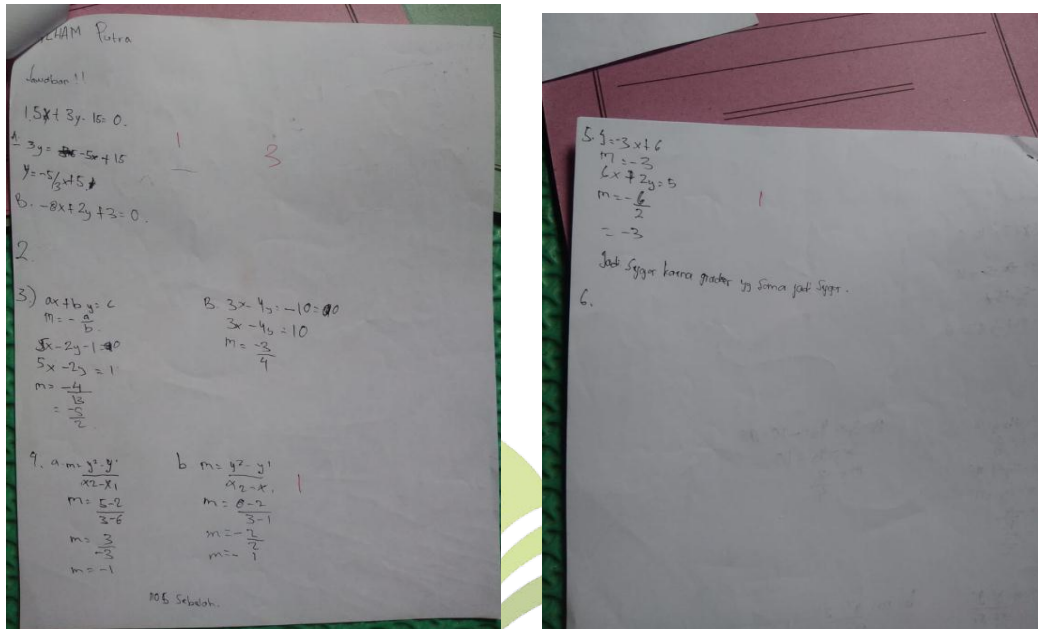 ILHAM Putra
Jawaban !!
1. 5x + 3y - 15 = 0.
A. 3y = -5x + 15
y = -5/3x + 5
B. -8x + 2y + 3 = 0.
1
3
2.
3.) ax + by = c
m = - a/b.
5x - 2y - 1 = 0
5x - 2y = 1
m = -4/B
= -5/2
B. 3x - 4y = -10 = 0
3x - 4y = 10
m = -3/4
4. a. m = y2 - y1 / x2 - x1
m = 5-2 / 3-6
m = 3/-3
m = -1
b m = y2 - y1 / x2 - x1
m = 0-2 / 3-1
m = - 2/2
m = - 1
1
Sebelah.
5. y = -3x + 6
m = -3
6x + 2y = 5
m = - 6/2
= -3
1
Jadi Sejajar karna gradien yg Sama jadi Sejajar.
6.